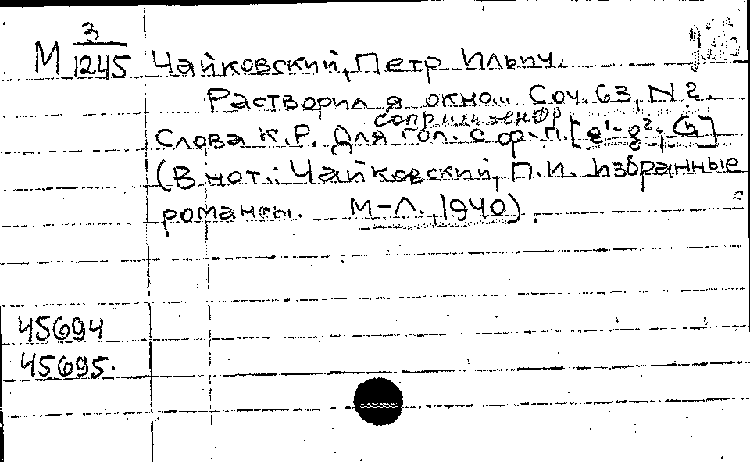 М 3/1245 Чайковский, Петр Ильич.
Растворил я окно... Соч. 63, N 2.
сопр. и тенор
Слова К.Р. Для гол. с ф.п. [e¹-g², G]
(В нот.: Чайковский, П.И. Избранные
романсы. М-Л., 1940).
45694
45695.